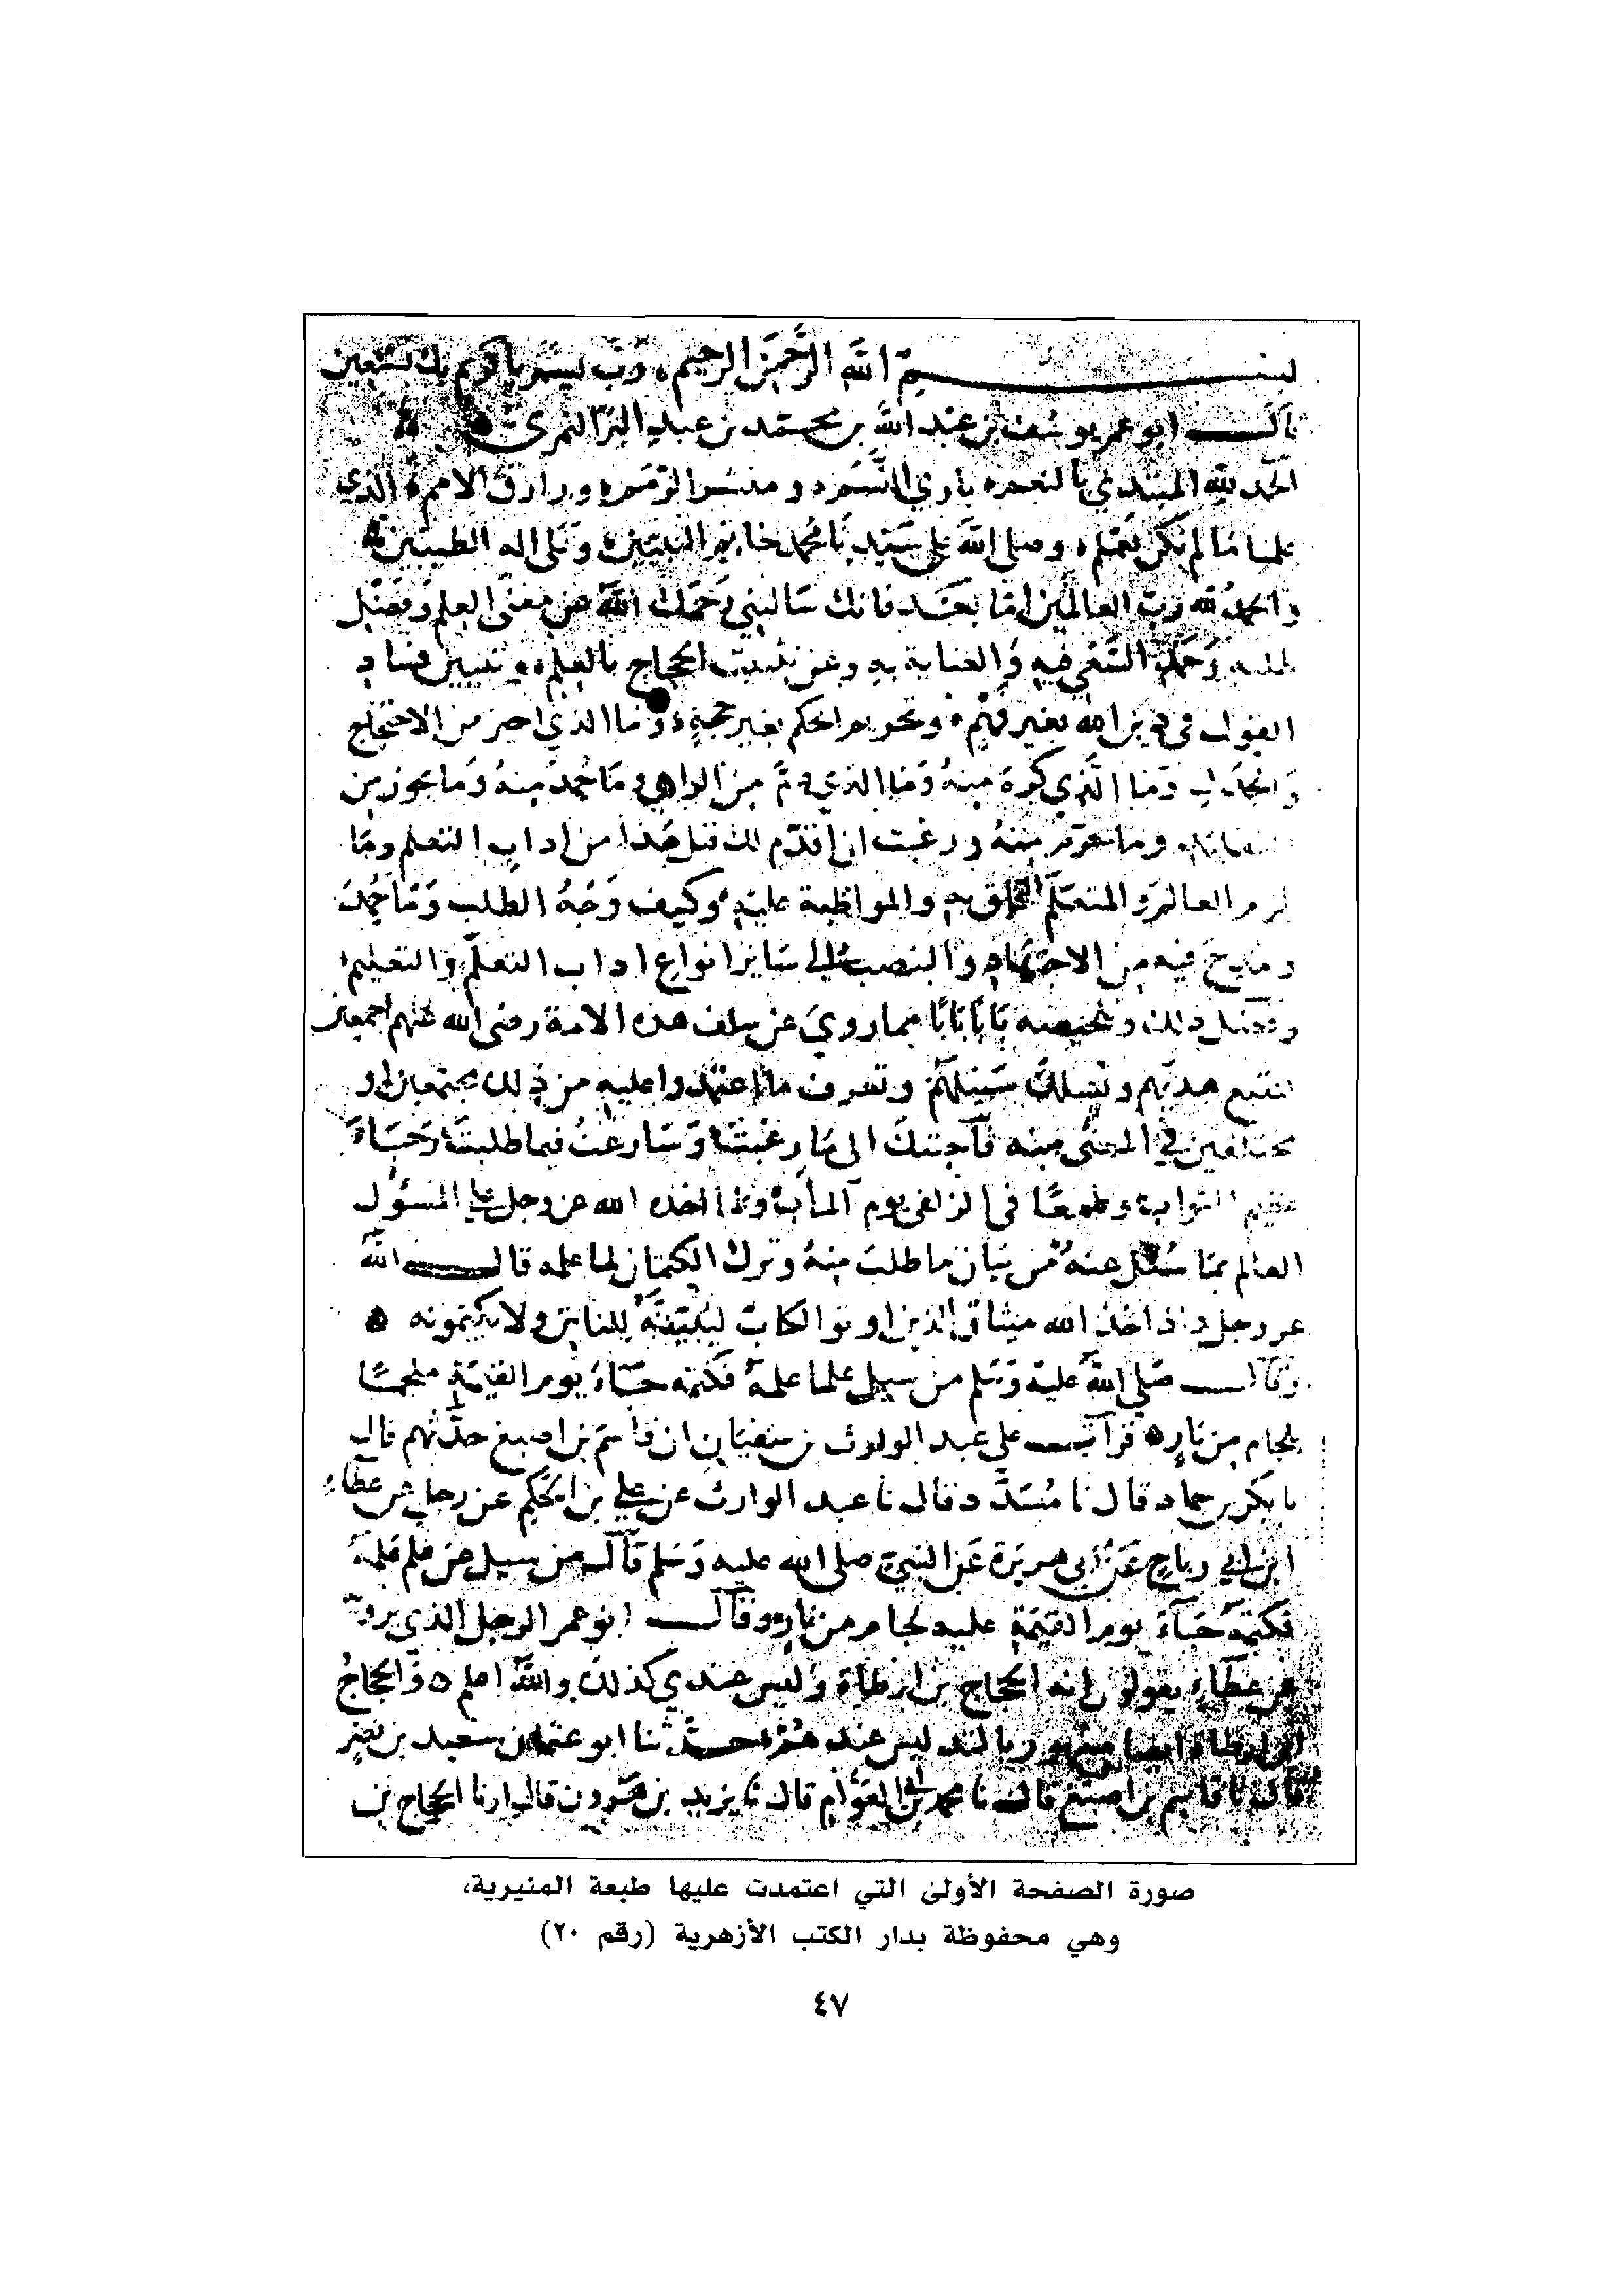 بسم الله الرحمن الرحيم رب يسر يا كريم بك نستعين
قال ابو عمر يوسف بن عبد الله بن محمد بن عبد البر النمري
الحمد لله المبتدي بالنعم باري النسم و منشر الرمم ورازق الامم الذي
علمنا ما لم نكن نعلم وصلى الله على سيدنا محمد خاتم النبيين وعلى اله الطيبين
والحمد لله رب العالمين اما بعد فانك سالتني رحمك الله عن معنى العلم وفضل
طلبه وحمد السعي فيه والعناية به وعن تثبيت الحجاج بالعلم و تبيين فساد
القول في دين الله بغير فهم وتحريم الحكم بغير حجة وما الذي اجيز من الاحتجاج
والجدل وما الذي كره منه وما الذي ذم من الراي وما حمد منه وما يجوز من
وما حرم منه ورغبت ان اقدم لك قبل هذا من اداب التعلم وما
يلزم العالم والمتعلم التخلق به والمواظبة عليه وكيف وجه الطلب وما حمد
ومدح فيه من الاجتهاد والنصب الى سائر انواع اداب التعلم والتعليم
وفضل ذلك وتلخيصه بابا بابا مما روي عن سلف هذه الامة رضي الله عنهم اجمعين
لنتبع هديهم ونسلك سبيلهم ونعرف ما اعتمدوا عليه من ذلك مجتمعين او
مختلفين في المعنى منه فاجبتك الى ما رغبت وسارعت فيما طلبت رجاء
عظيم الثواب وطمعا في الزلفى يوم المآب ولما اخذه الله عز وجل على المسؤل
العالم بما سئل عنه من بيان ما طلب منه وترك الكتمان لما علمه قال الله
عز وجل واذ اخذ الله ميثاق الذين اوتوا الكتاب لتبيننه للناس ولا تكتمونه
وقال صلى الله عليه وسلم من سيل علما علمه فكتمه جاء يوم القيمة ملجما
بلجام من نار قرات على عبد الوارث بن سفيان ان قاسم بن اصبغ حدثهم قال
نا بكر بن حماد قال نا مسدد قال نا عبد الوارث عن علي بن الحكم عن رجل عن عطاء
ابن ابي رباح عن ابي هريرة عن النبي صلى الله عليه وسلم قال من سيل عن علم علمه
فكتمه جاء يوم القيمة عليه لجام من نار وقال ابو عمر الرجل الذي يرويه
عن عطاء يقولون انه الحجاج بن ارطاة وليس عندي كذلك والله اعلم والحجاج
ابن ارطاة ايضا مشهور بالتدليس عندهم حدثنا ابو عثمان سعيد بن نصر
قال نا قاسم بن اصبغ قال نا محمد بن ابي العوام قال نا يزيد بن هرون قال ارنا الحجاج بن
صورة الصفحة الأولى التي اعتمدت عليها طبعة المنيرية،
وهي محفوظة بدار الكتب الأزهرية (رقم ٢٠)
٤٧